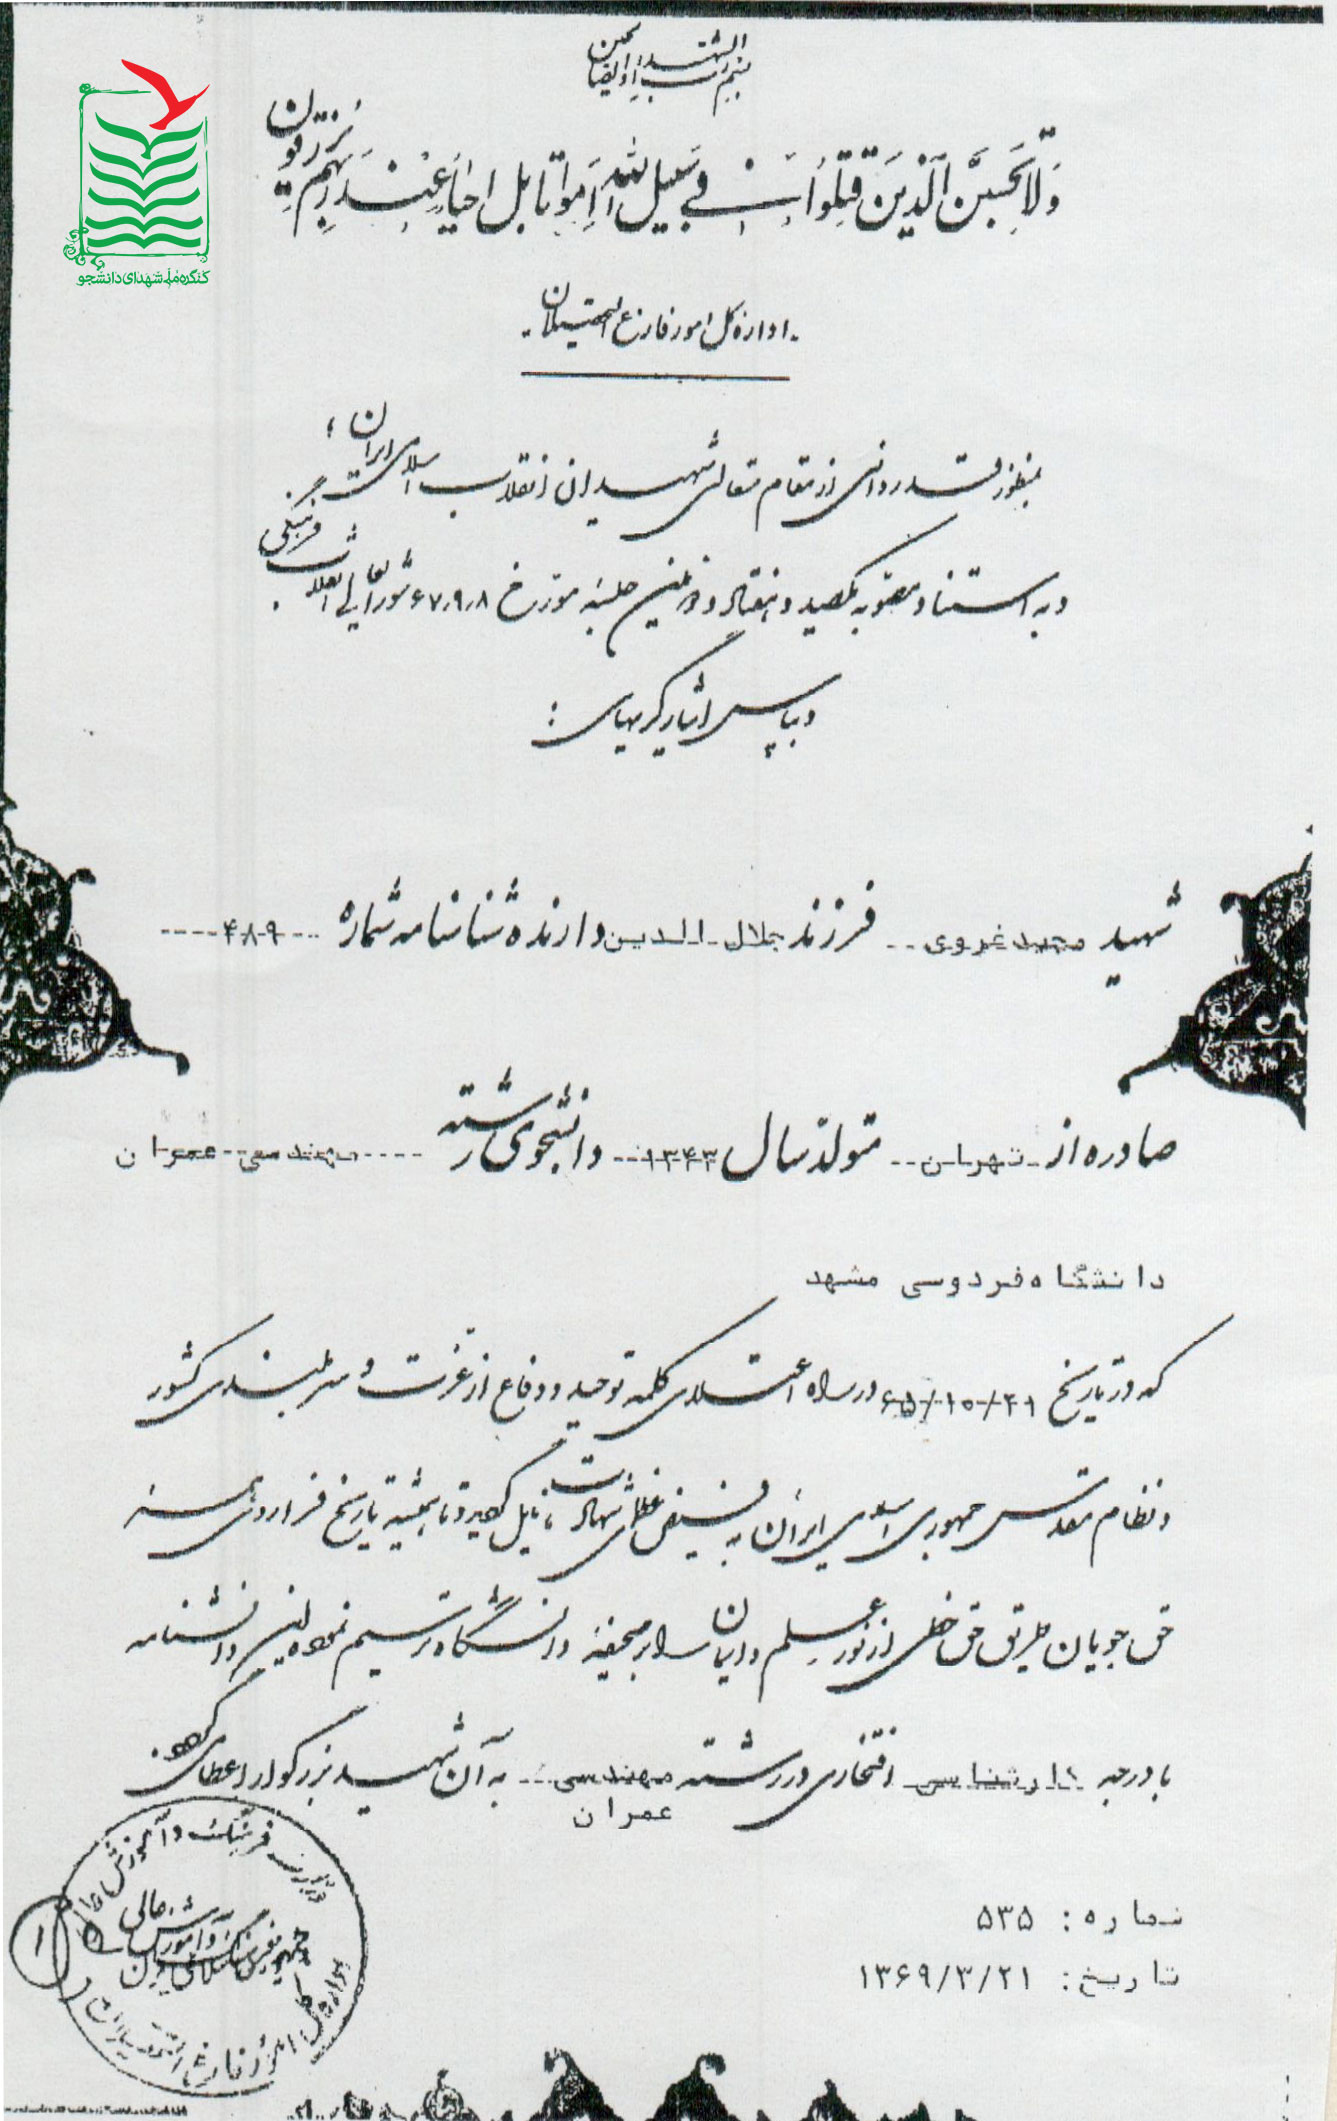 بسم رب الشهداء و الصالحین
وَلَا تَحْسَبَنَّ الَّذِینَ قُتِلُوا فِی سَبِیلِ اللهِ اَمْوَاتًا بَلْ اَحْیَاءٌ عِنْدَ رَبِّهِمْ یُرْزَقُونَ
کنگره ملی شهدای دانشجو
-اداره کل امور فارغ التحصیلان-
بمنظور قدردانی از مقام متعالی شهیدان انقلاب اسلامی ایران ؛
و به استناد مصوبه یکصد و هفتاد و دومین جلسه مورخ ۶۷٫۹٫۸ شورایعالی انقلاب فرهنگی
و بپاس ایثارگریهای :
شهید مجید غروی فرزند جلال الدین دارنده شناسنامه شماره ۴۸۹
صادره از تهران متولد سال ۱۳۴۳ دانشجوی رشته مهندسی عمران
دانشگاه فردوسی مشهد
که در تاریخ ۶۵/۱۰/۲۱ در راه اعتلای کلمه توحید و دفاع از عزت و سربلندی کشور
و نظام مقدس جمهوری اسلامی ایران به فیض عظمای شهادت نایل گردید و تا همیشه تاریخ فراروی همه
حق جویان طریق حق خطی از نور علم و ایمان را بر صحیفه دانشگاه ترسیم نموده این دانشنامه
با درجه کارشناسی افتخاری در رشته مهندسی به آن شهید بزرگوار اعطا می گردد.
عمران
شماره: ۵۳۵
تاریخ: ۱۳۶۹/۳/۲۱
وزارت فرهنگ و آموزش عالی
اداره کل امور فارغ التحصیلان
۱